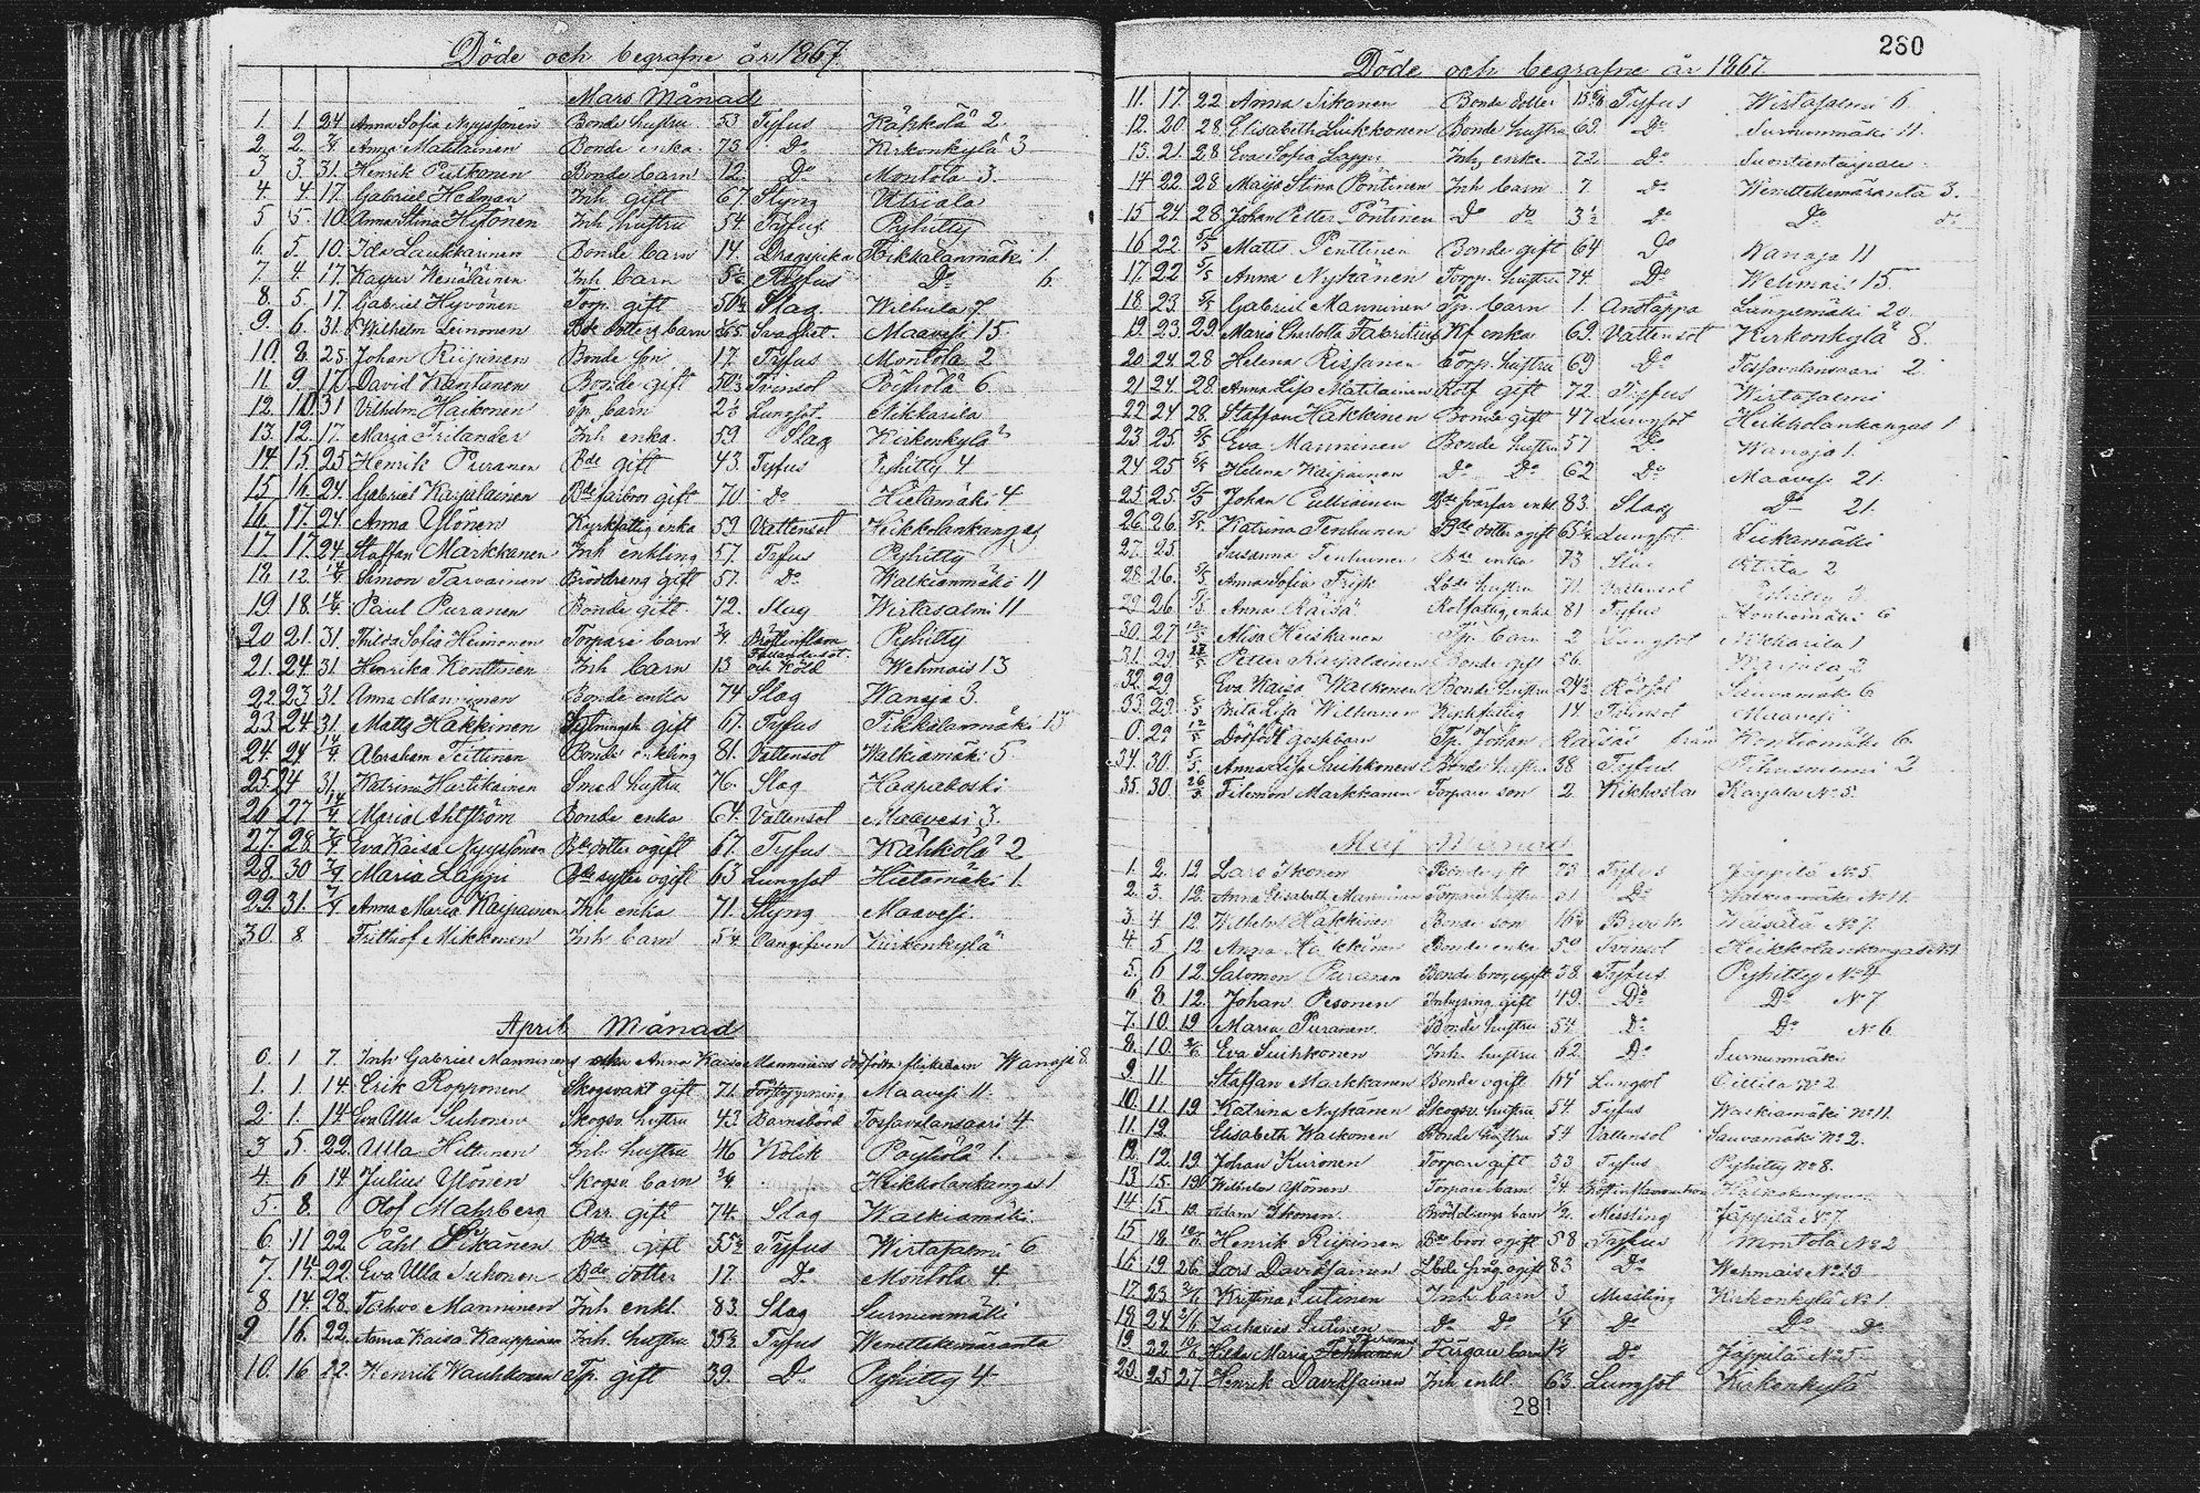 Döde och begrafne år 1867.
Mars Månad
1. 1. 24 Anna Sofia Nyyssönen Bonde hustru 53 Tyfus Käkkölä 2.
2. 2. 7/4 Anna Matilainen Bonde enka 73. Do Kirkonkylä 3
3 3. 31. Henrik Putkonen Bonde barn 12. Do Montola 3.
4. 4. 17. Gabriel Hedman Inh. gift 67. Styng Utriala
5 5. 10. Anna Stina Hytönen Inh. hustru 54. Tyfus. Pyhitty
6. 5. 10. Ida Laukkarinen Bonde barn 14. Dragsjuka Tikkalanmäki 1.
7. 4. 17. Kasper Venäläinen Inh. barn Tyfus Do 6.
8. 5. 17 Gabriel Hyvönen Torp. gift Slag Wilhula 7.
9. 6. 31. Wilhelm Leinonen Bde dotters barn Maavesi 15.
10. 8. 25. Johan Riipinen Bonde son 17. Tyfus Montola 2
11. 9. 17 David Kantanen Bonde gift Tvinsot Pöyhölä 6.
12. 10. 31 Vilhelm Haikonen Tp. barn 2½ Lungsot. Nikkarila
13. 12. 17. Maria Frilander Inh. enka. 59 Slag Kirkonkylä
14. 15. 25 Henrik Puranen Bde gift 43. Tyfus Pyhitty 4
15 16. 24. Gabriel Karjalainen Bde farbror gift 70. Do Hietamäki 4
16. 17. 24. Anna Ylönen Kyrkfattig enka 59 Vattensot Heikkolankangas
17. 17. 24 Staffan Markkanen Inh enkling 57 Tyfus Pyhitty
18 12. 14/4 Simon Tarvainen Bröddreng gift 57. Do Walkiamäki 11
19. 18. 14/4 Paul Puranen Bonde gift. 72. Slag Wirtasalmi 11
20 21. 31. Thilda Sofia Heimonen Torpare barn ¾ Bröstinflam Pyhitty
21. 24. 31 Henrika Konttinen Inh barn 13 Fallandesot och köld Wehmais 13
22. 23 31. Anna Manninen Bonde enka 74 Slag Wanaja 3.
23. 24. 31. Matts Häkkinen gift 67. Tyfus Tikkalanmäki 15
24. 24 14/4 Abraham Teittinen Bonde enkling 81. Vattensot Walkiamäki 5
25. 24 31. Katrina Hartikainen Smed hustru 76. Slag Haapakoski
26 27 14/4 Maria Ahlström Bonde enka 64. Vattensot Maavesi 3.
27. 28 7/4 Eva Kaisa Nyyssönen Bde dotter ogift 67. Tyfus Kähkölä 2
28. 30 7/4 Maria Lappi Bde syster ogift 63 Lungsot Hietamäki 1.
29. 31. 7/4 Anna Maria Kaipainen Inh enka 71. Styng Maavesi.
30. 8. Frithiof Mikkonen Inh barn 5¼ Oangifven Kirkonkylä
April Månad
0. 1 7. Inh Gabriel Manninens och Anna Kaisa Manninens dödfödda flickebarn Wanaja 8.
1. 1. 14. Erik Ropponen Skogsvakt gift 71. Förstoppning Maavesi 11.
2. 1. 14 Eva Ulla Suhonen Skogsv. hustru 43. Barnsbörd Tosfavalansaari 4
3 5. 22. Ulla Hiltunen Inh. hustru 46 Kolik Pöyhölä 1.
4. 6 14 Julius Ylönen Skogsv barn ¾ Heikkolankangas 1
5. 8. Olof Mahrberg Arr. gift 74. Slag Walkiamäki.
6. 11 22 Påhl Sikanen Bde gift 55½ Tyfus Wirtasalmi 6
7. 14. 22. Eva Ulla Suhonen Bde dotter 17. Do Montola 4
8 14. 28. Tahvo Manninen Inh. enkl. 83. Slag Surnunmäki
9 16. 22. Anna Kaisa Kauppinen Inh. hustru 35½ Tyfus Wenettekemäranta
10. 16 22. Henrik Wauhkonen Tp. gift 39. Do Pyhitty 4.
280
Döde och begrafne år 1867.
11. 17. 22 Anna Sikanen Bonde dotter Tyfus Wirtasalmi 6
12. 20 28. Elisabeth Liukkonen Bonde hustru 63. Do Surnunmäki 11.
13. 21. 28 Eva Sofia Lappi Inh. enka 72 Do Suontientaipale
14 22. 28. Maija Stina Pöntinen Inh barn 7 Do Wenettekemäranta 3.
15 24 28. Johan Petter Pöntinen Do do 3½ Do Do d:
16 22. 5/5 Matts Penttinen Bonde gift 64 Do Wanaja 11
17. 22 5/5 Anna Nykänen Torp. hustru 74. Do Wehmais 15.
18. 23. 5/5 Gabriel Manninen Tp. barn 1. Andtäppa Längelmäki 20.
19. 23. 29. Maria Charlotta Fabritius Kf enka 69. Vattensot Kirkonkylä 8.
20 24. 28 Helena Rissanen Torp. hustru 69 Do Tosfavalansaari 2.
21 24. 28. Anna Lisa Matilainen Rotf gift 72. Tyfus Wirtasalmi
22 24 28 Staffan Häkkinen Bonde gift 47 Lungsot Heikkolankangas 1
23. 25. 5/5 Eva Manninen Bonde hustru 57 Do Wanaja 1.
24 25 5/5 Helena Kaipainen Do Do 62 Do Maavesi 21.
25 25. 5/5 Johan Pulliainen Bde svärfar enkl 83. Slag Do 21.
26. 26. 5/5. Katrina Tenhunen Bde dotter ogift 65½ Lungsot Siikamäki
27. 25. Susanna Tenhunen Bde enka 73 Slag 2
28. 26. 5/5. Anna Sofia Frisk hustru 71 Vattensot
29 26. 5/5 Anna Räisä Rotfattig enka 81 Tyfus Kontiomäki 6
30. 27 12/5 Alisa Heiskanen Tp. barn 2 Lungsot Nikkarila 1
31. 29. Petter Karjalainen Bonde gift 56. Karjala 2
32. 29. Eva Kaisa Waikonen Bonde hustru 24½ Rödsot Sauvamäki 6
33. 29. 5/5 Brita Lisa Wilhunen Kyrkfattig 14. Tvinsot Maavesi
0. 29 12/5 Dödfödt gossebarn Tp. Johan Räisäs från Kontiomäki 6.
34. 30. 5/5. Anna Lisa Suihkonen Bonde hustru 38 Tyfus Tihusniemi 2
35. 30. 26/5 Filemon Markkanen Torpare son 2. Kikhosta Karjala No 5.
Maj Månad
1. 2. 12 Lars Ikonen Bonde gift 73 Tyfus Jäppilä No 5
2. 3. 12. Anna Elisabeth Manninen Torpare hustru Do Walkiamäki No 11.
3. 4 12. Wilhelm Häkkinen Bonde son Bråck Waisälä No 7.
4. 5 12 Anna Häkkinen Bonde enka 50 Tvinsot Heikkolankangas No 1
5. 6 12. Salomon Puranen Bonde bror, ogift 58. Tyfus Pyhitty No 4
6 8. 12. Johan Pesonen Inhysing gift 49. Do Do No 7
7. 10. 19 Maria Puranen. Bonde hustru 54 Do Do No 6
8. 10. 2/6 Eva Suihkonen Inh. hustru 62. Do Surnunmäki
9 11 Staffan Markkanen Bonde ogift 64 Lungsot No 2
10. 11. 19 Katrina Nykänen Skogsv. hustru 54. Tyfus Walkiamäki No 11.
11. 12. Elisabeth Waikonen Bonde hustru 54 Vattensol Sauvamäki No 2.
12. 12. 19. Johan Kuronen Torpare gift 33 Tyfus Pyhitty No 8.
13 15. 19 Wilhelm Ylönen Torpare barn ¾ Bröstinflammation
14 15. 19 Adam Ikonen. Bröddrengs barn ½. Messling Jäppilä No 7
15 18. Henrik Riipinen Bde bror ogift 58 Tyfus Montola No 2
16 19 26 Lars Davidsainen ogift 83 Do Wehmais No 13
17. 23 2/6 Kristina Sutinen Inh barn 3 Messling Kirkonkylä No 1
18 24 2/6 Zacharias Sutinen Do Do ¼ Do Do Do
19. 22 Hilda Maria Färgare barn 1¼ Do Jäppilä No 5
20. 25 27 Henrik Davidsainen Inh enkl. 63. Lungsot Kirkonkylä
281